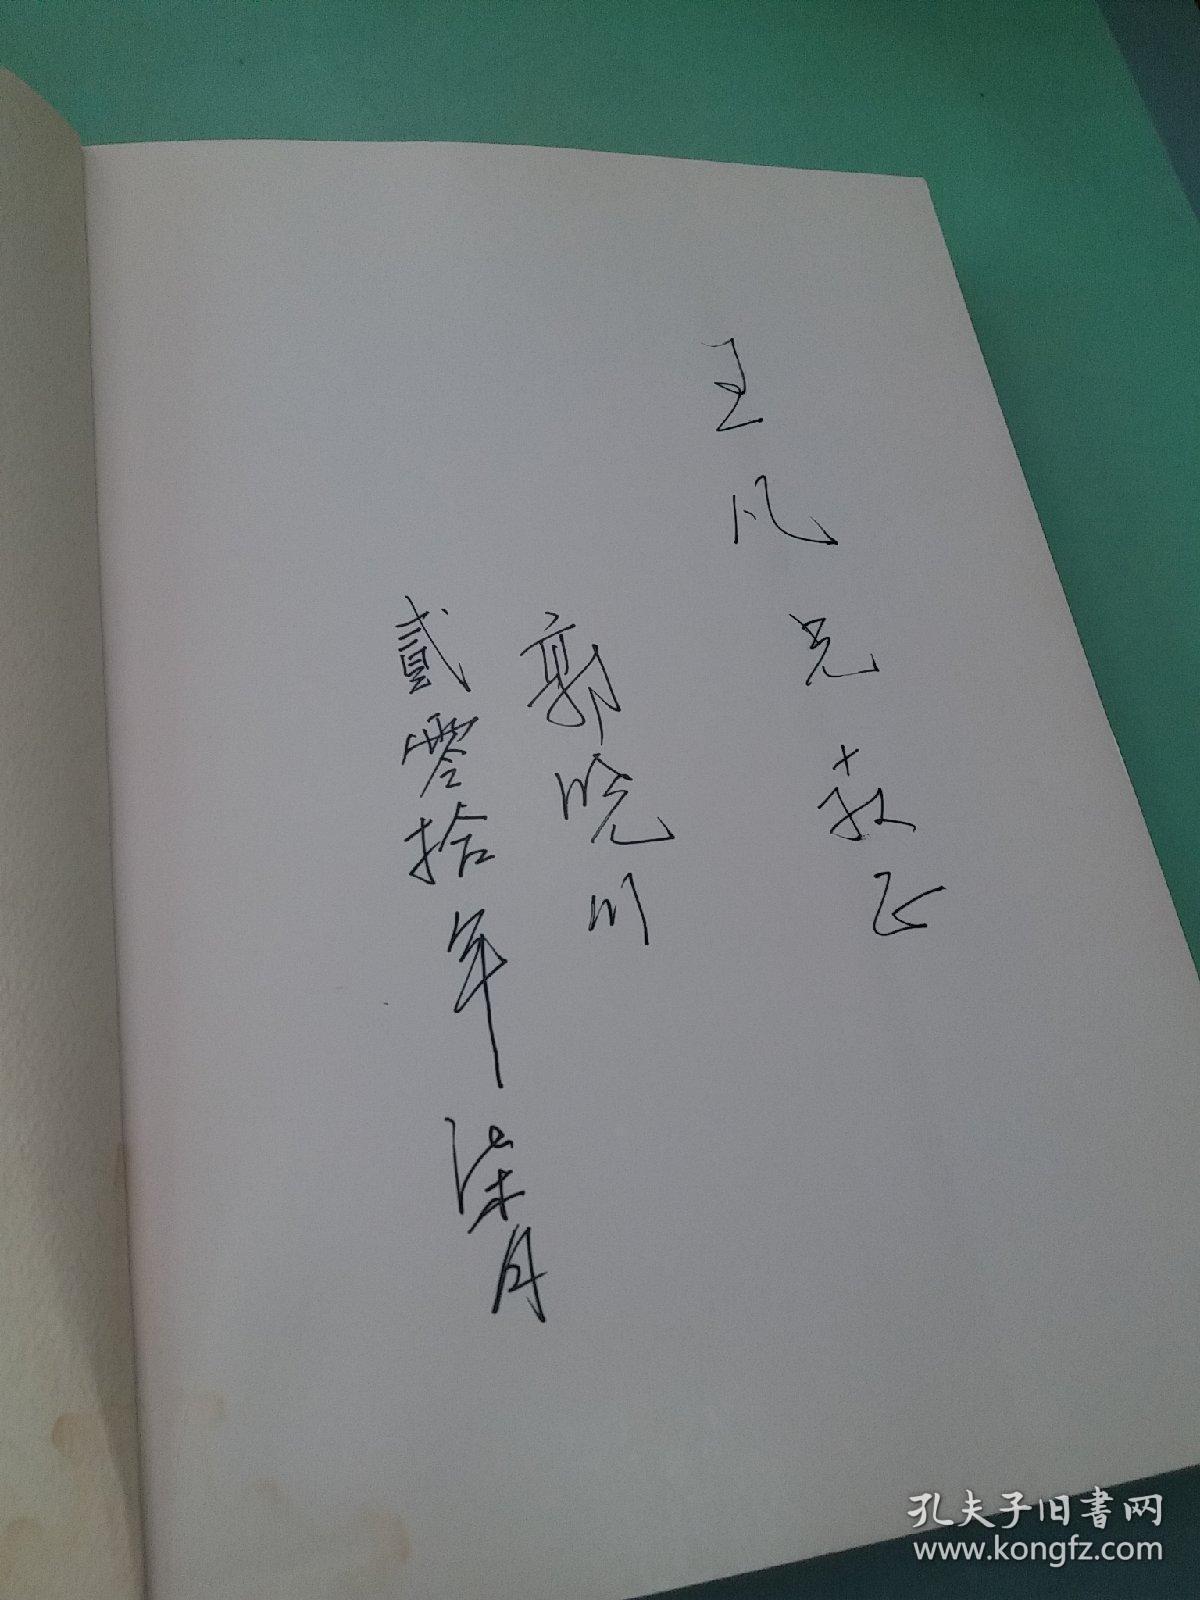 王凡兄教正
郭晓川
貳零拾年柒月
孔夫子旧書网
www.kongfz.com